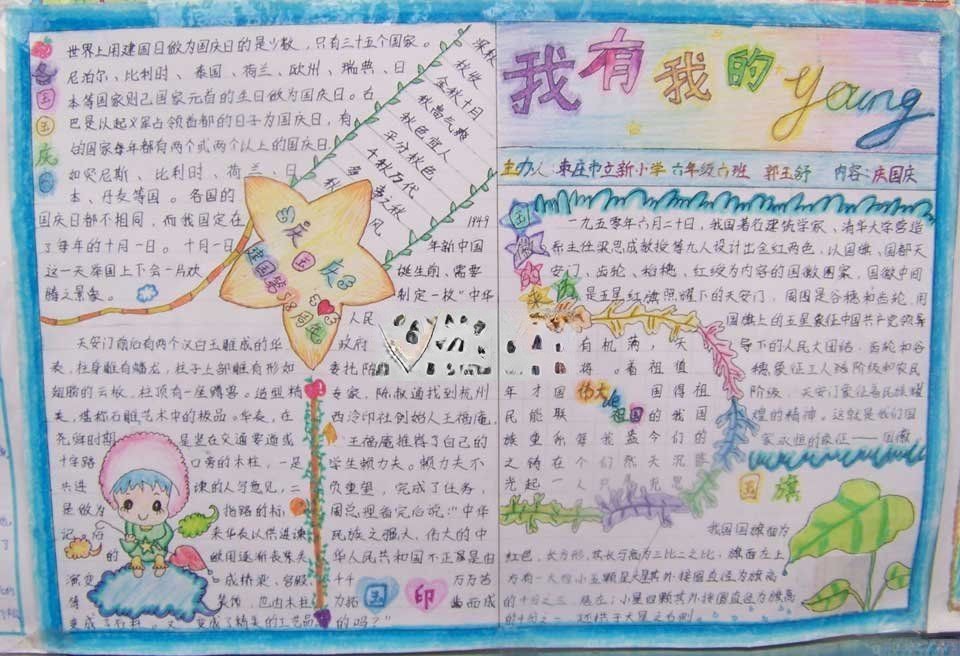 我有我的young
主办人：枣庄市立新小学 六年级六班 郭玉舒 内容：庆国庆
世界上用建国日做为国庆日的是少数，只有三十五个国家。
尼泊尔、比利时、泰国、荷兰、欧州、瑞典、日
本等国家则己国家元首的生日做为国庆日。古
巴是以起义军占领首都的日子为国庆日，有
的国家每年都有两个或两个以上的国庆日，
如贝尼斯、比利时、荷兰、日
本、丹麦等国。各国的
国庆日都不相同，而我国定在
了每年的十月一日。十月一日
这一天举国上下会一片欢
腾之景象。
国
庆
庆
国
庆
建国路
58周年
深秋
秋收
金秋十月
秋高气爽
秋色宜人
平分秋色
千秋万代
多事之秋
秋
风
天安门前后有两个汉白玉雕成的华
表，柱身雕有蟠龙，柱子上部雕有形如
翅膀的云板，柱顶有一座蹲兽。造型精
美，堪称石雕艺术中的极品。华表，在
尧舜时期
是竖在交通要道或
十字路
口旁的木柱，一是
供进
谏的人写意见，二
是做为
指路的标
记，后
来华表从供进谏
的
做用逐渐丧失
演变
成桥梁、宫殿
等
装饰，也由木柱
变成了石料，又
变成了精美的工艺品
1949
年新中国
诞生前，需要
制定一枚"中华
人民
政府
委托陈
专家，陈叔通找到杭州
西冷印社创始人王福庵，
王福庵推荐了自己的
学生赖力夫。赖力夫不
负重望，完成了任务，
周总理看完后说："中华
民族之强大，伟大的中
华人民共和国不正是由
千千
万万苦
力拓
出而成
的吗？"
国
印
国
徽
的
来
历
一九五零年六月二十日，我国著名建筑学家、清华大学营造
系主任梁思成教授等九人设计出金红两色，以国旗、国都天
安门、齿轮、稻穗、红绶为内容的国徽图案，国徽中间
是五星红旗照耀下的天安门，周围是谷穗和齿轮，用
国旗上的五星象征中国共产党领导
导下的人民大团结，齿轮和谷
穗象征工人阶级和农民
阶级，天安门象征各民族耀
煌的精神。这就是我们国
家永恒的象征——国徽
有机满，天
将。看祖值
年才国
国得祖
民能联
的我国
族重和每我盖今们的
之铸在个们然天沉
光起一人只
伟大
祖国
国
旗
我国国旗面为
红色，长方形，其长与高为三比二之比，旗面左上
方有一大四小五颗星大星其外接圆直径为旗高
的十分之三，居左；小星四颗其外接圆直径为旗高
的十分之一，环拱于大星之右侧。